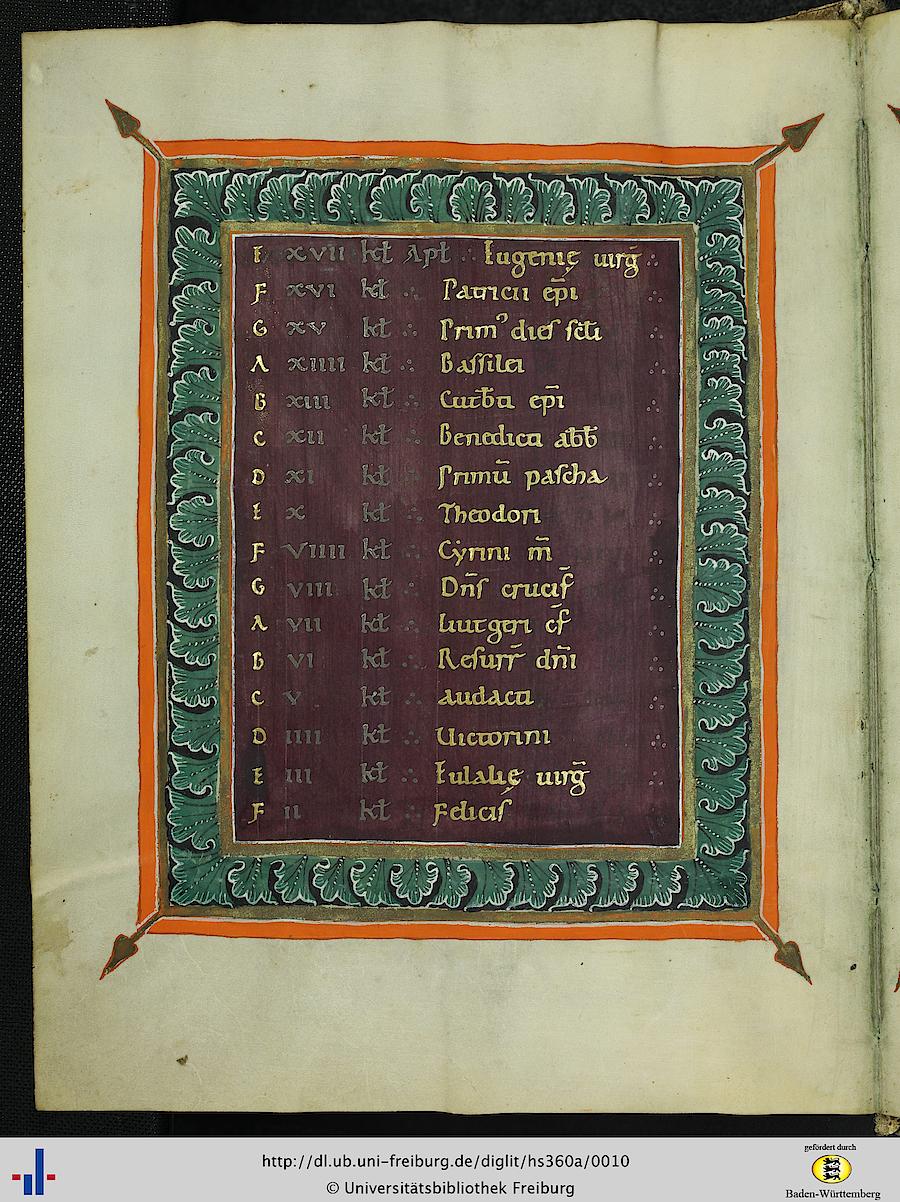 E xvii kł Apł ∴ Eugenię uirḡ ∴
F xvi kł ∴ Patricii ep̄i ∴
G xv kł ∴ Primꝰ dieſ ſcłi ∴
A xiiii kł ∴ Baſſilei ∴
B xiii kł ∴ Cutƀti ep̄i ∴
C xii kł ∴ Benedicti abƀ ∴
D xi kł ∴ Primū paſcha ∴
E x kł ∴ Theodori ∴
F viiii kł ∴ Cẏrini m̄ ∴
G viii kł ∴ Dn̄ſ crucif̄ ∴
A vii kł ∴ Liutgeri cf̄ ∴
B vi kł ∴ Reſurr̄ dn̄i ∴
C v kł ∴ audacti ∴
D iiii kł ∴ Uictorini ∴
E iii kł ∴ Eulalię uirḡ ∴
F ii kł ∴ Feliciſ ∴
http://dl.ub.uni-freiburg.de/diglit/hs360a/0010
© Universitätsbibliothek Freiburg
gefördert durch
Baden-Württemberg